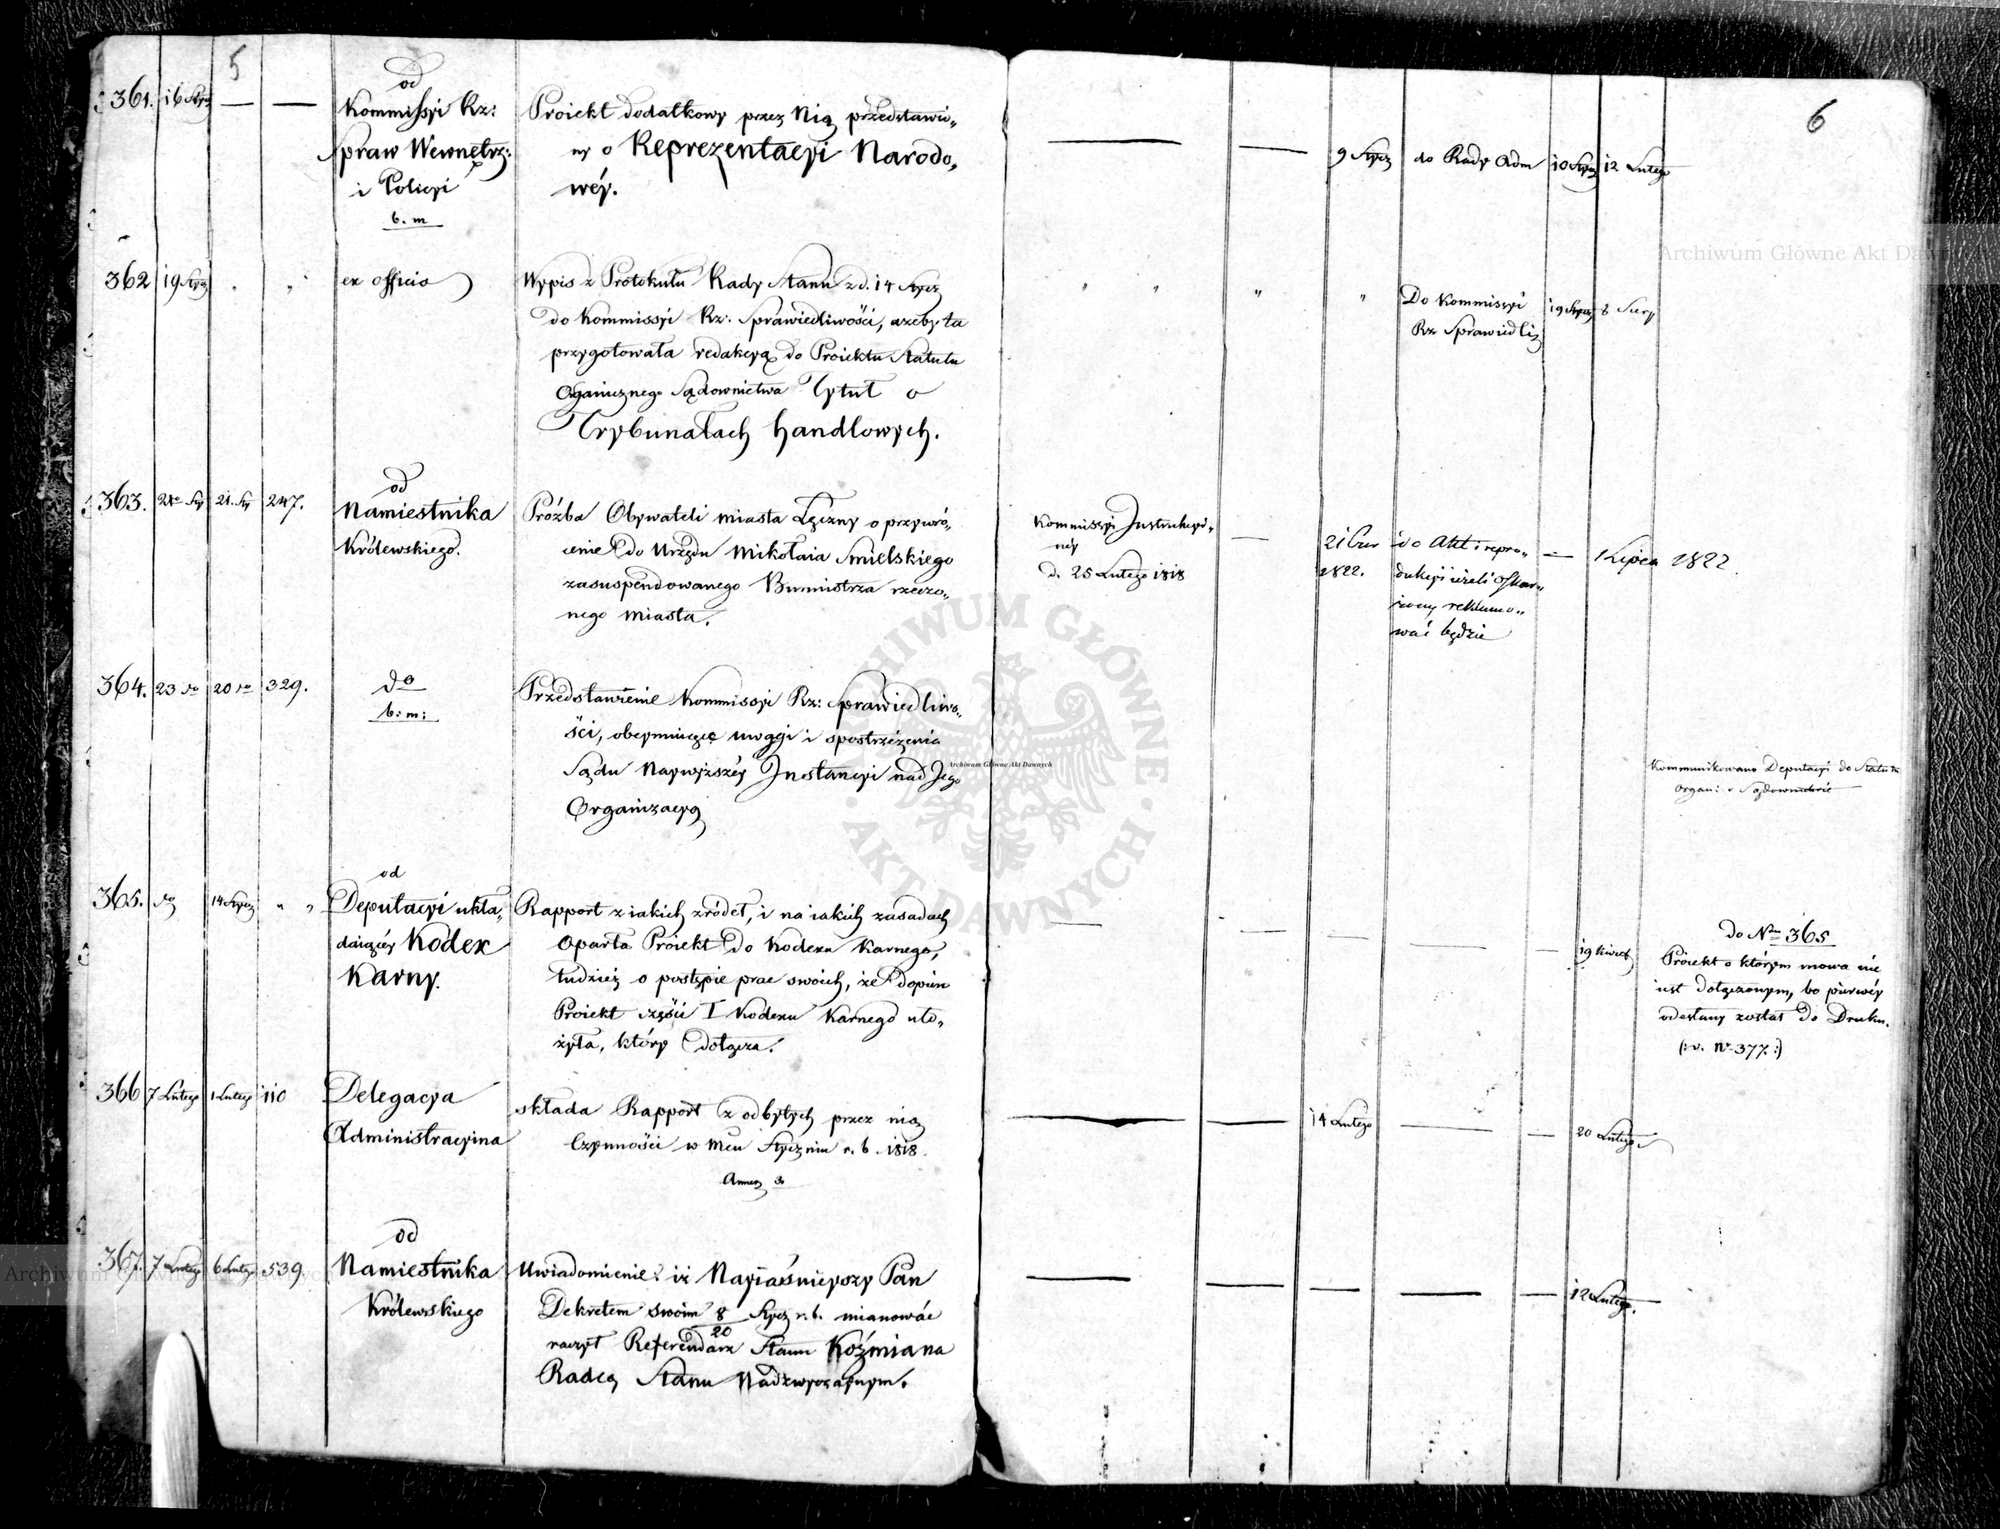 5
361. 16 Stycz — —
od
Kommissyi Rz:
Spraw Wewnętrz:
i Policyi
b. m
Proiekt dodatkowy przez Nią przedstawio„
ny o Reprezentacyi Narodo„
wéy.
6
— — 9 Stycz do Rady Adm 10 Stycz 12 Lutego
362 19 Stycz „ „
ex officio
Wypis z Protokułu Rady Stanu z d. 14 Stycz
do Kommissyi Rz: Sprawiedliwości, ażeby ta
przygotowała redakcyą do Proiektu Statutu
Organicznego Sądownictwa Tytuł o
Trybunałach handlowych.
„ „ „ „
Do Kommissyi
Rz Sprawiedli
19 Stycz 8
363. 21. Sty 247.
od
Namiestnika
Królewskiego.
Próźba Obywateli miasta Łęczny o przywró„
cenie do Urzędu Mikołaia Smielskiego
zasuspendowanego Burmistrza rzeczo„
nego miasta.
Kommissyi Instrukcyi„
néy
d. 25 Lutego 1818
—
21 Czer
1822.
do Akt i repro„
dukcyi ieżeli Oskar„
żony reklamo„
wać będzie
— 1 Lipca 1822.
364. 23 do 20 do 329.
do
b: m:
Przedstawienie Kommissyi Rz: Sprawiedliwo„
ści, obeymuiące uwagi i spostrzeżenia
Sądu Naywyższéy Instancyi nad Jego
Organizacyą
Kommunikowano Deputacyi do Statutu
organ: o Sądownictwie
365. do 14 Stycz „ „
od
Deputacyi ukła„
daiącéy Kodex
Karny.
Rapport z iakich zródeł, i na iakich zasadach
oparła Proiekt do Kodexu Karnego,
tudzież o postępie prac swoich, że dopiero
Proiekt części I Kodexu Karnego uło„
żyła, który dołącza.
— — — — — 19 Kwiet
do Nru 365
Proiekt o którym mowa nie
iest dołączonym, bo pierwéy
odesłany został do Druku.
(: v. Nr 377. :)
366 7 Lutego 1 Lutego 110
Delegacya
Administracyina
składa Rapport z odbytych przez nią
Czynności w Mcu Styczniu r. b. 1818.
Annex 3
— — 14 Lutego — — 20 Lutego
367. 7 Lutego 6 Lutego 539.
od
Namiestnika
Królewskiego
Uwiadomienie: iż Nayiaśnieyszy Pan
Dekretem swoim 8/20 Stycz r. b. mianować
raczył Referendarza Stanu Koźmiana
Radcą Stanu Nadzwyczaynym.
— — — — — 12 Lutego.
Archiwum Główne Akt Dawnych
Archiwum Główne Akt Dawnych
Archiwum Główne Akt Dawnych
ARCHIWUM GŁÓWNE · AKT DAWNYCH ·